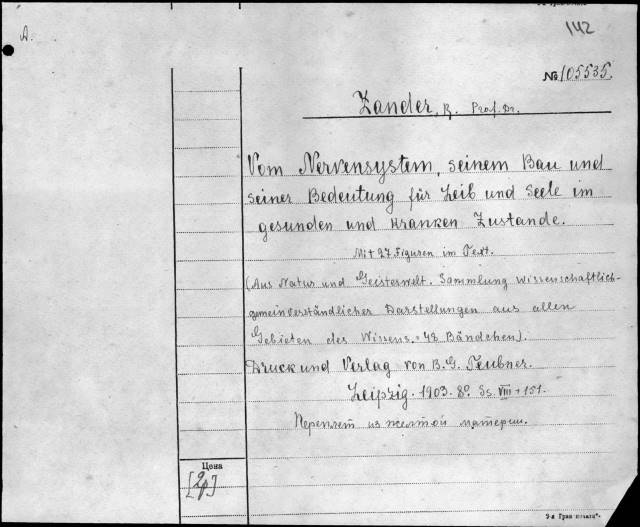 A.
142
№ 105535.
Zander, R. Prof. Dr.
Vom Nervensystem, seinem Bau und
seiner Bedeutung für Leib und Seele im
gesunden und kranken Zustande.
Mit 27 Figuren im Text.
(Aus Natur und Geisterwelt. Sammlung wissenschaftlich-
gemeinverständlicher Darstellungen aus allen
Gebieten des Wissens. 48 Bändchen).
Druck und Verlag von B. G. Teubner.
Leipzig. 1903. 8º Ss. VIII + 151.
Переплет из желтой материи.
Цена
[2р]